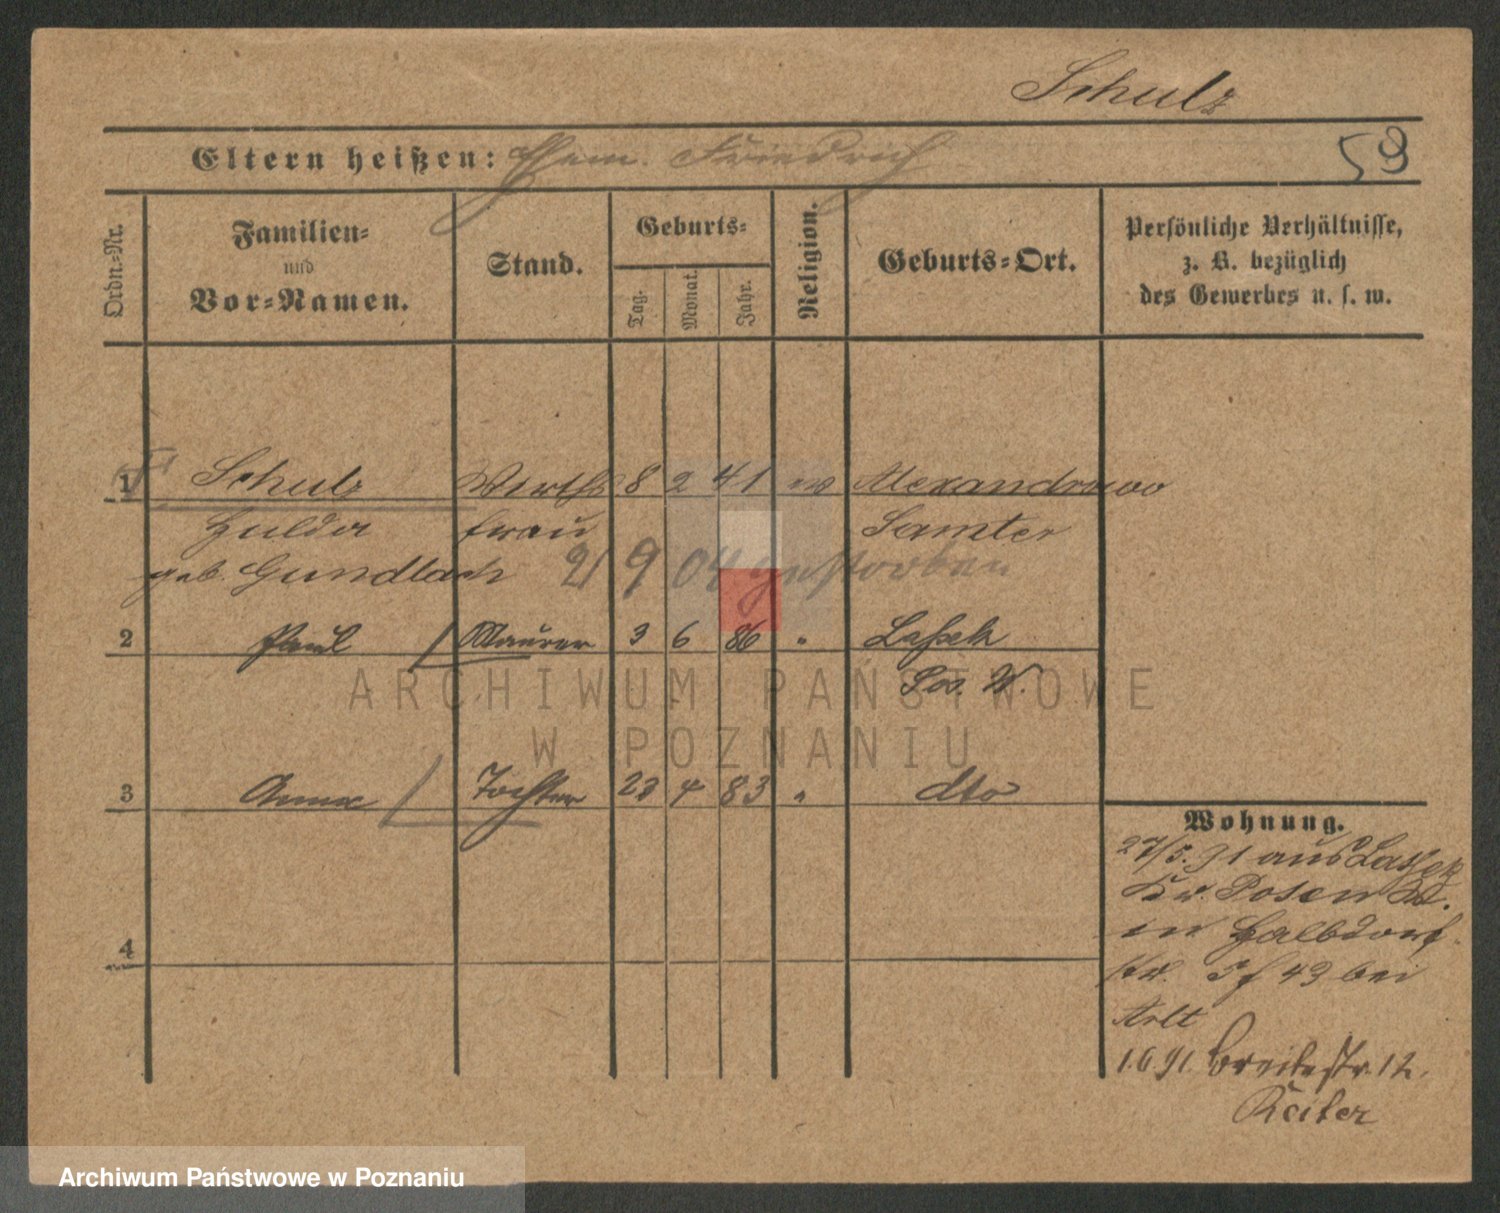 Schulz
Eltern heißen: Ehem. Friedrich 59
Ordn.-Nr. Familien- und Vor-Namen. Stand. Geburts- Tag. Monat. Jahr. Religion. Geburts-Ort. Persönliche Verhältnisse, z. B. bezüglich des Gewerbes u. s. w.
1 Schulz Wirths 8 2 41 ev Alexandrowo
Hulda frau Samter
geb. Gundlach 2/9 04 gestorben
2 Paul Maurer 3 6 86 " Lassek
Pos. W.
3 Anna Tochter 23 4 83 " dto
4
Wohnung.
27/5. 91 aus Lassek
Kr. Posen W.
in Halbdorf
str. 43 bei
Arlt
1.6 91. Breitestr. 12.
Reiter
ARCHIWUM PAŃSTWOWE
W POZNANIU
Archiwum Państwowe w Poznaniu